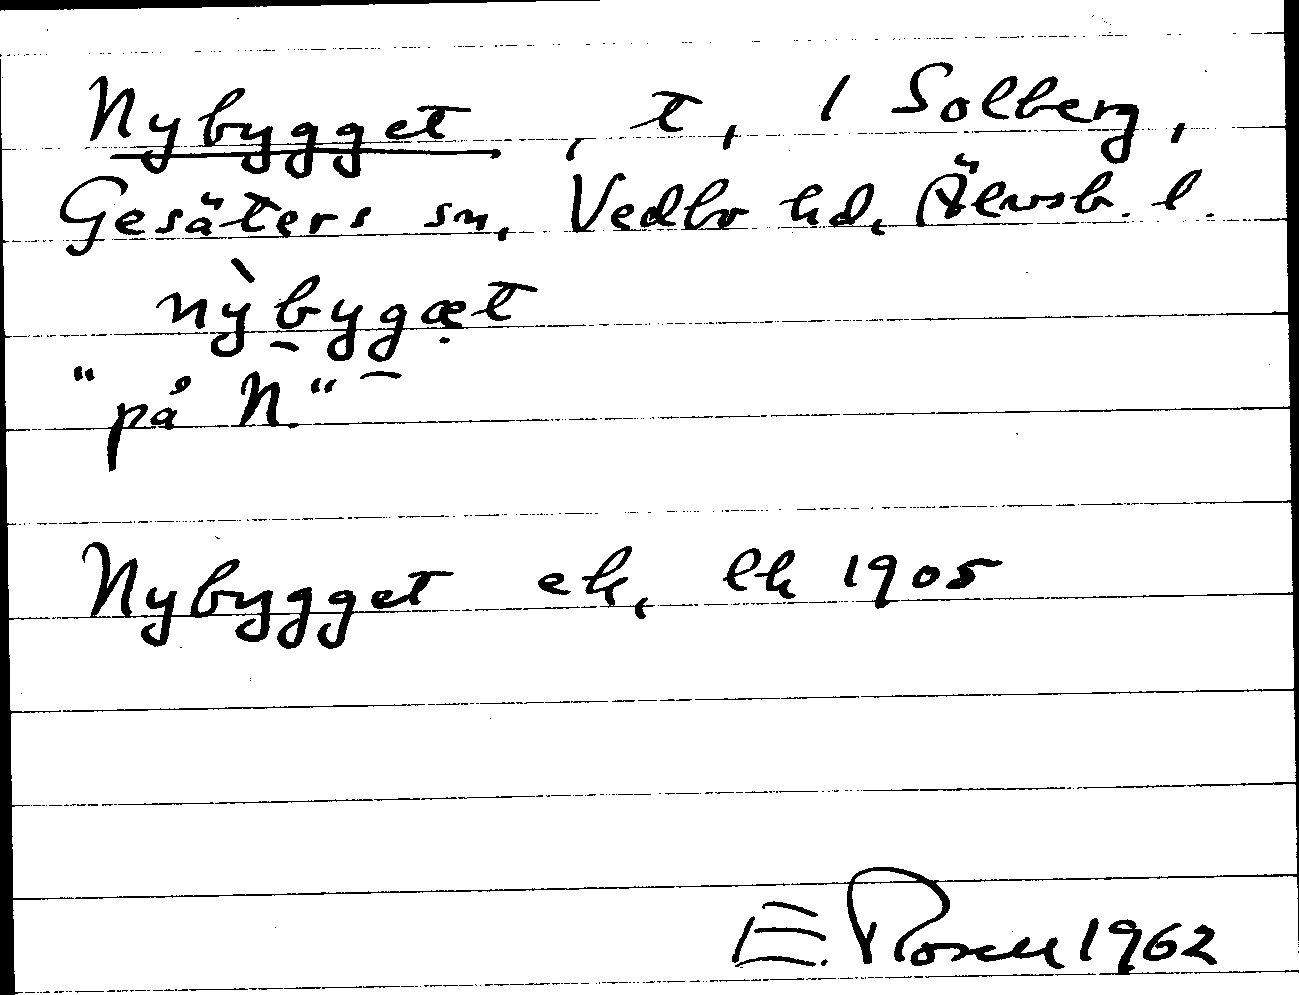 Nybygget, t, 1 Solberg,
Gesäters sn, Vedbo hd, Älvsb. l.
nỳbygæt
"på N."
Nybygget ek, lk 1905
E. Rosell 1962